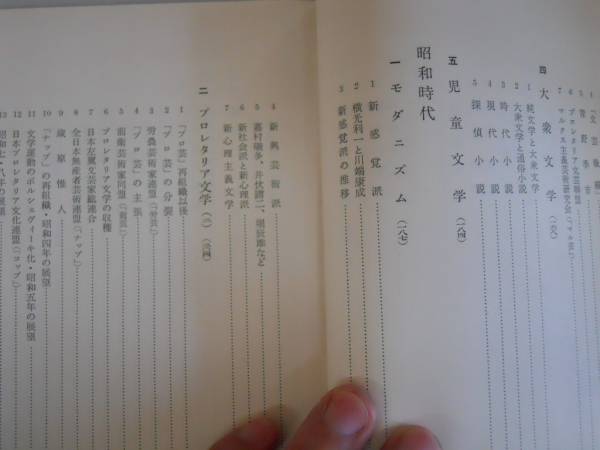 6 プロレタリア文芸聯盟
7 マルクス主義芸術研究会(「マル芸」)
四 大衆文学
1 純文学と大衆文学
2 大衆文学と通俗小説
3 時代小説
4 現代小説
5 探偵小説
五 児童文学(一八四)
昭和時代
一 モダニズム(一八七)
1 新感覚派
2 横光利一と川端康成
3 新感覚派の推移
4 新興芸術派
5 嘉村礒多、井伏鱒二、堀辰雄など
6 新社会派と新心理派
7 新心理主義文学
二 プロレタリア文学
1 「プロ芸」再組織以後
2 「プロ芸」の分裂
3 労農芸術家連盟(「労芸」)
4 「プロ芸」の主張
5 前衛芸術家同盟(「前芸」)
6 プロレタリア文学の収穫
7 日本左翼文芸家総連合
8 全日本無産者芸術連盟(「ナップ」)
9 蔵原惟人
10 「ナップ」の再組織・昭和四年の展望
11 文学運動のボルシェヴィーキ化・昭和五年の展望
12 日本プロレタリア文化連盟(「コップ」)
13 昭和七・八年の展望